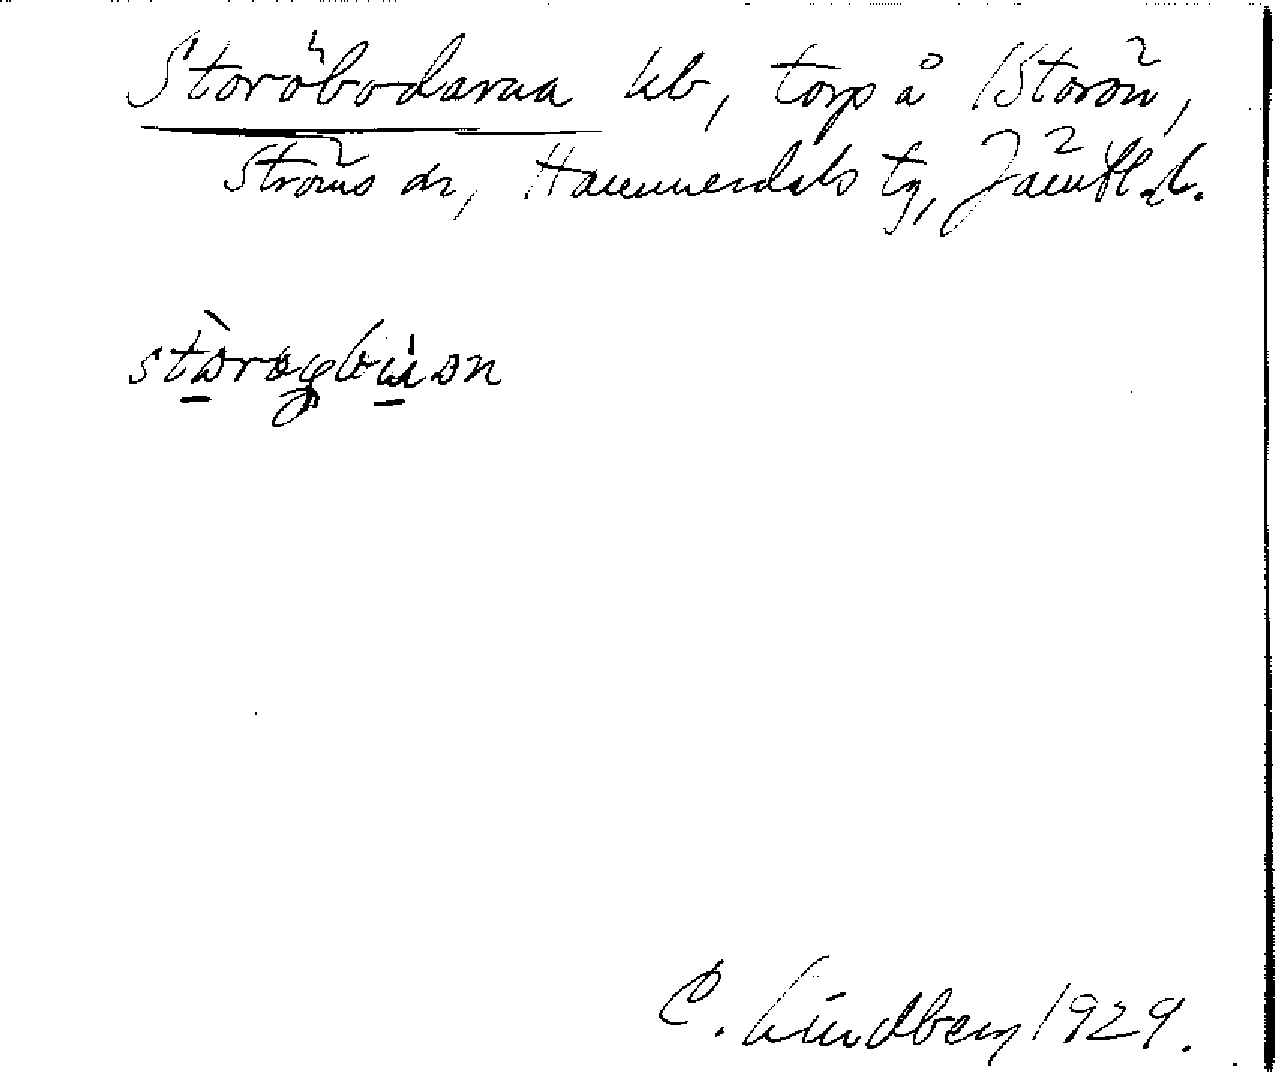 Storöbodarna kb, torp å 1 Storön,
Ströms sn, Hammerdals tg, Jämtl. l.
C. Lindberg 1929.